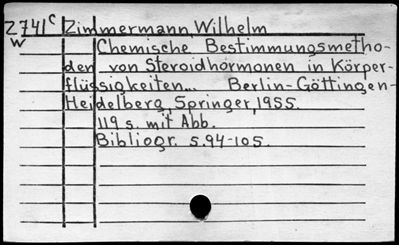 Z741c Zimmermann, Wilhelm
W Chemische Bestimmungsmetho-
den von Steroidhormonen in Körper-
flüssigkeiten... Berlin-Göttingen-
Heidelberg, Springer, 1955.
119 s. mit Abb.
Bibliogr. s.94-105.